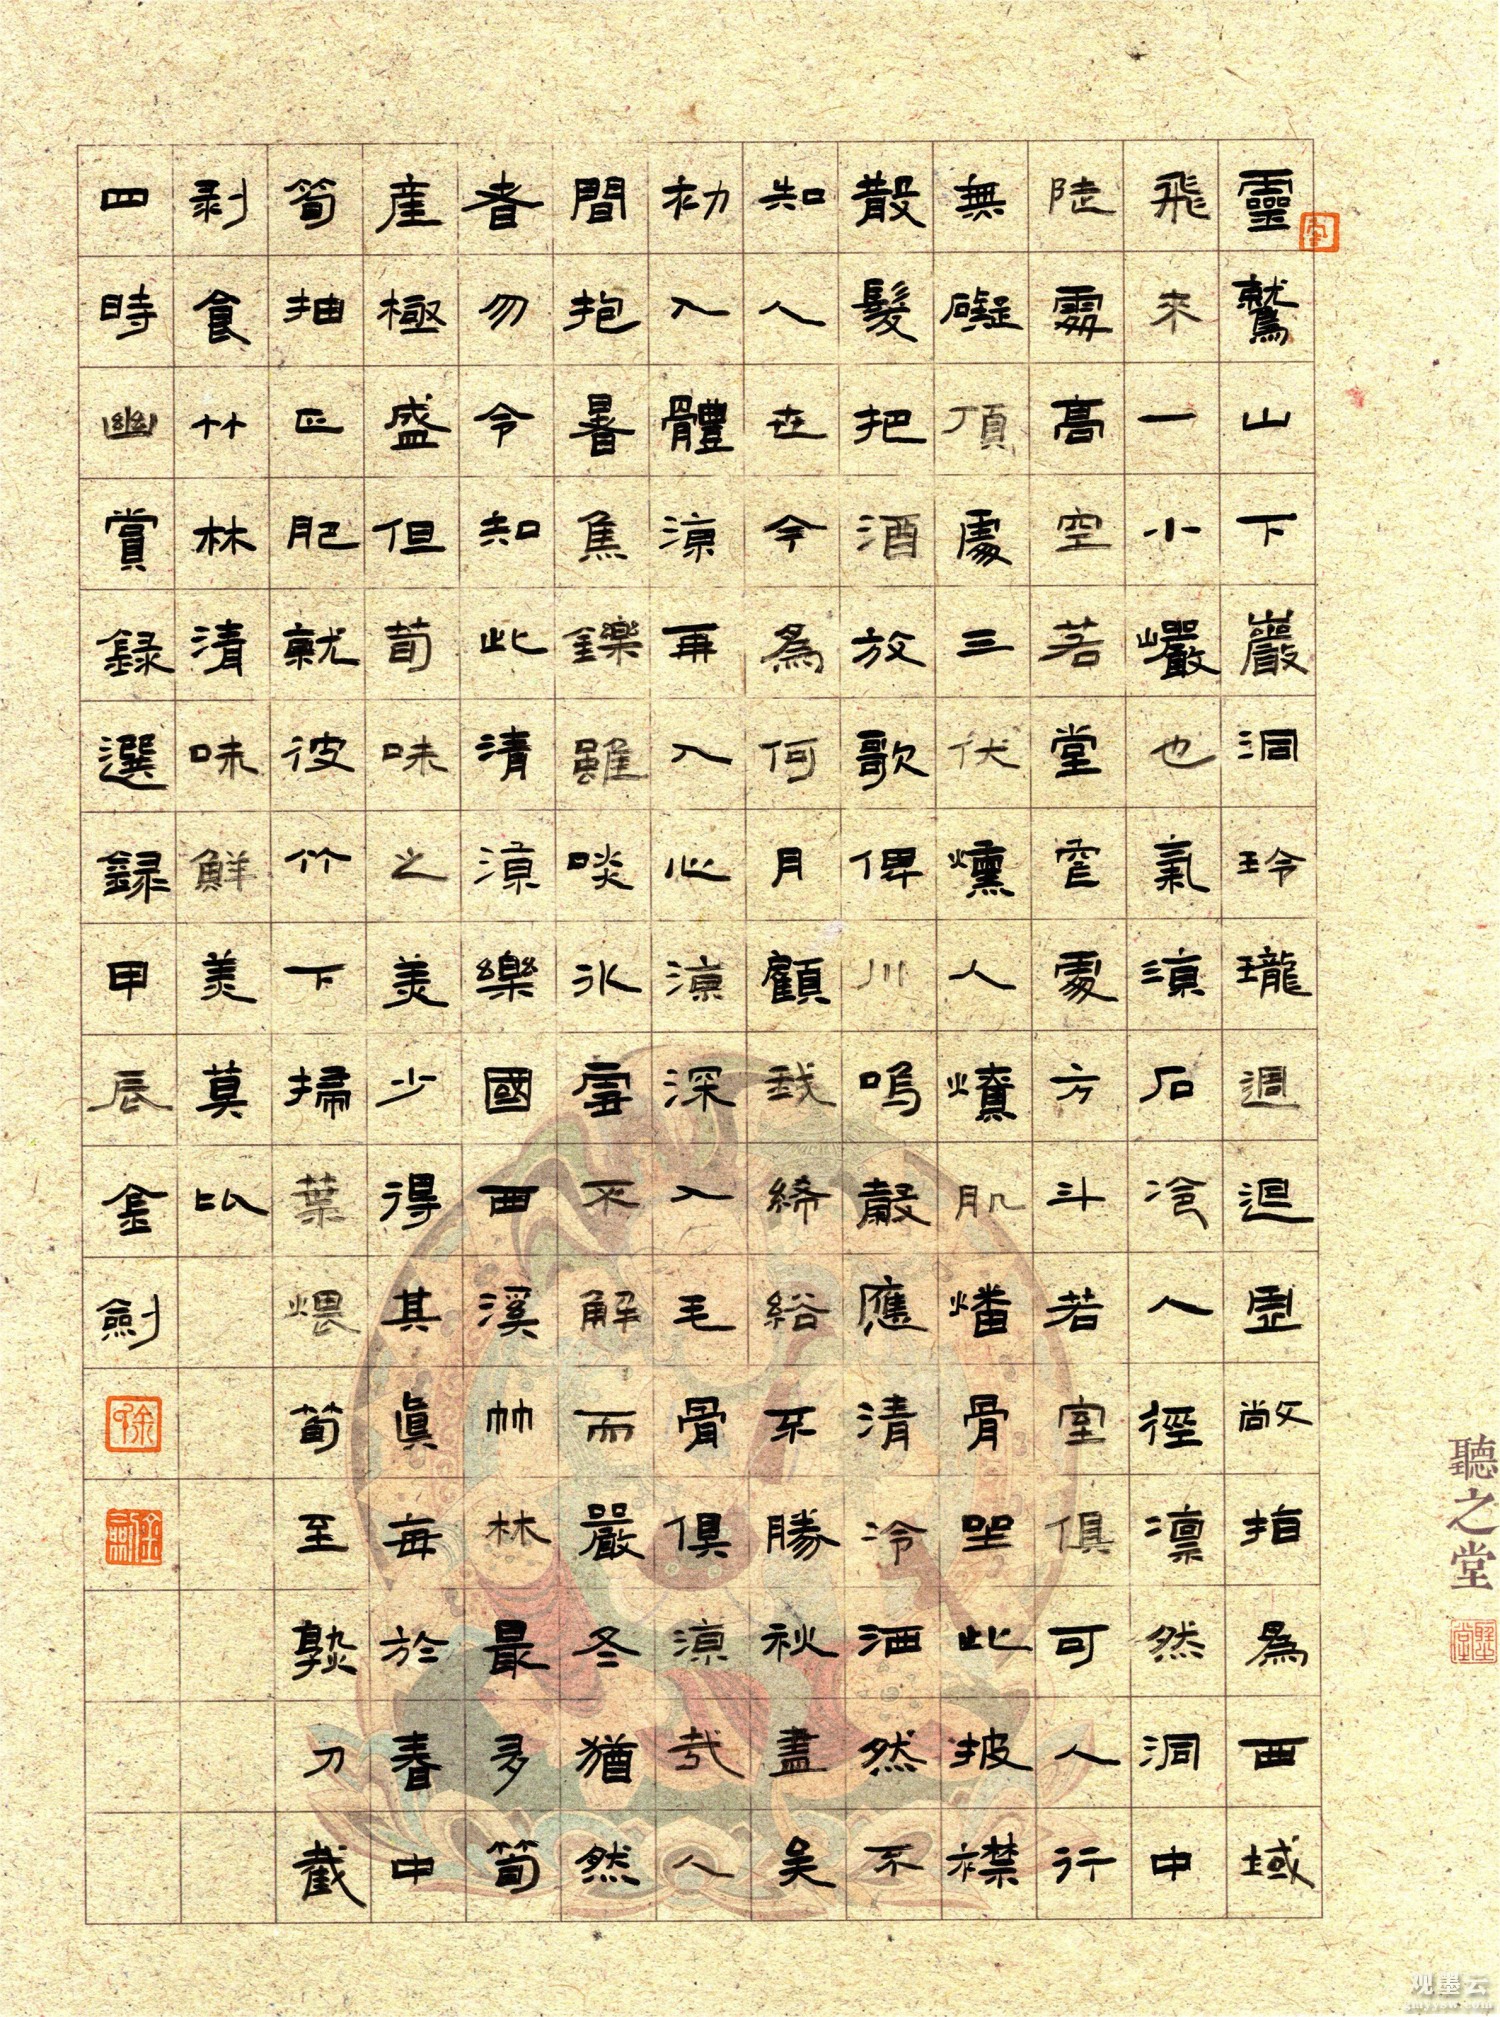 靈鷲山下巖洞玲瓏週迴虛敞指為西域
飛來一小巖也氣涼石冷人徑凜然洞中
陡處高空若堂窄處方斗若室俱可人行
無礙頂處三伏燻人燎肌燔骨坐此披襟
散髮把酒放歌俾川鳴穀應清泠洒然不
知人世今為何月顧我絺綌不勝秋盡矣
初入體涼再入心涼深入毛骨俱涼哉人
間抱暑焦鑠雖啖冰雪不解而嚴冬猶然
者勿令知此清涼樂國西溪竹林最多筍
產極盛但荀味之美少得其真每於春中
筍抽正肥就彼竹下掃葉煨荀至熟刀截
剥食竹林清味鮮美莫比
四時幽賞録選録甲辰金劍
聽之堂
观墨云
gmyyow.com